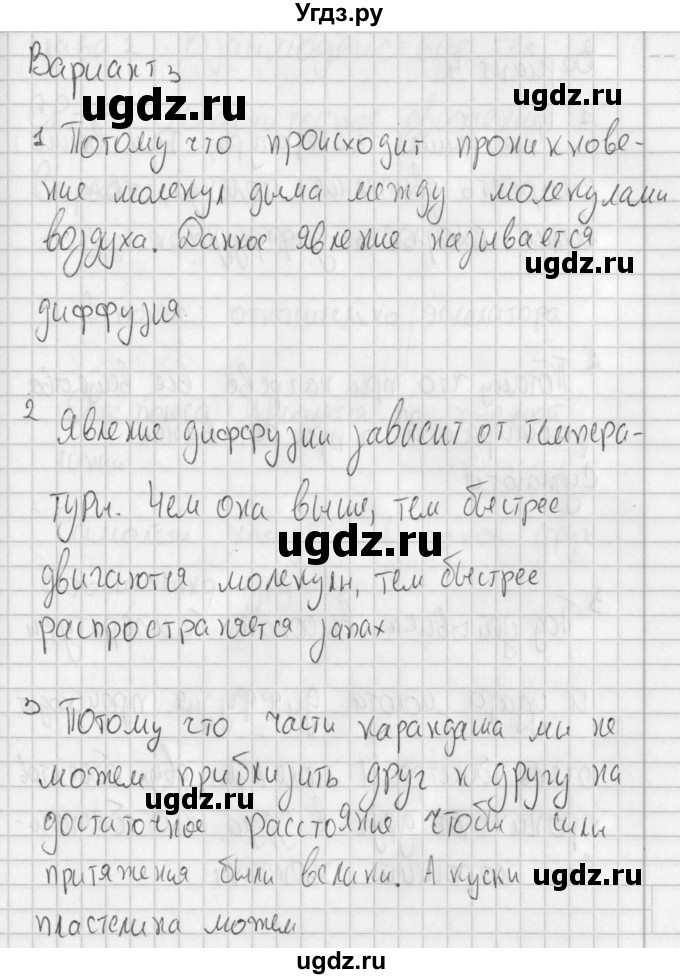 Угдз.ру
Вариант 3
ugdz.ru
ugdz.ru
1 Потому что происходит проникнове-
ние молекул дыма между молекулами
воздуха. Данное явление называется
ugdz.ru
диффузия.
2 Явление диффузии зависит от темпера-
туры. Чем она выше, тем быстрее
ugdz.ru
двигаются молекулы, тем быстрее
распространяется запах
3 Потому что части карандаша мы не
можем приблизить друг к другу на
ugdz.ru
достаточное расстояние чтобы силы
притяжения были велики. А куски
ugdz.ru
пластелина можем
ugdz.ru